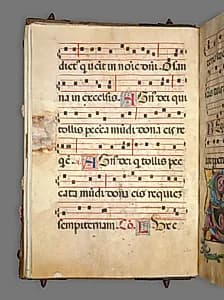 dict' q venit in noie dni. Osan
na in excelsis. Agn' dei qui
tollis peccata mudi dona eis re
qe. Agn' dei q tollis pec
cata mudi dona eis requiez
sempiternam. Co. Hec